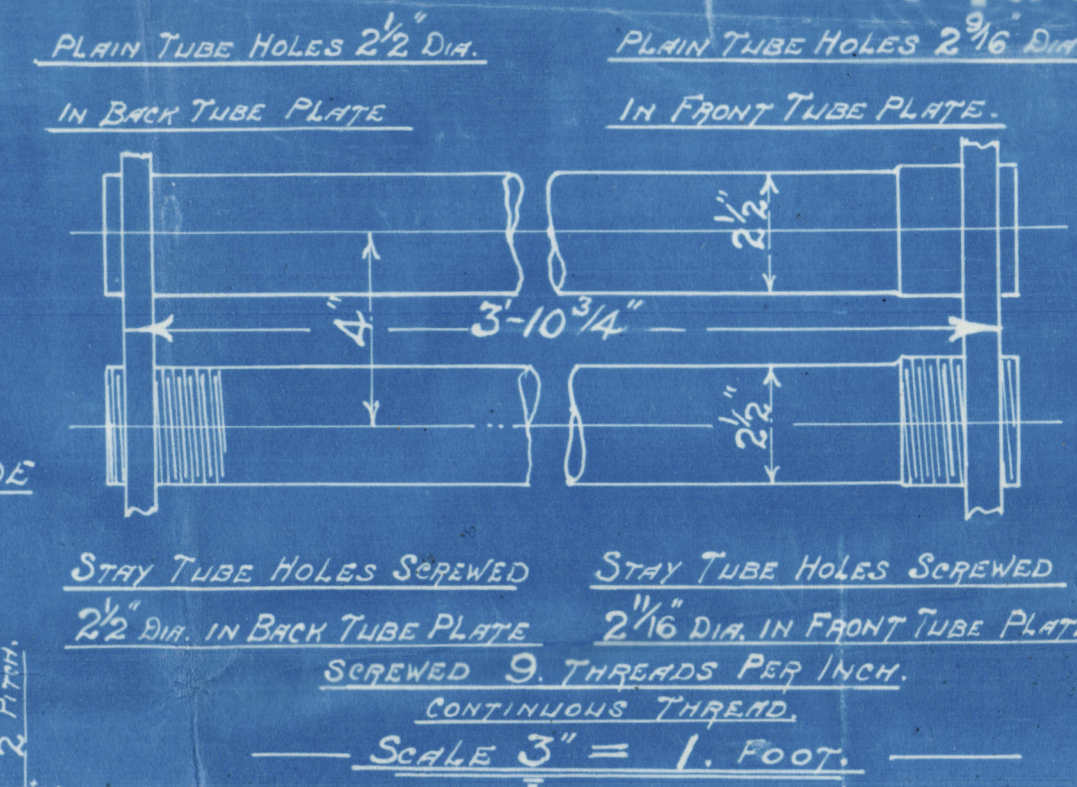 PLAIN TUBE HOLES 2 1/2" DIA.
IN BACK TUBE PLATE
PLAIN TUBE HOLES 2 9/16" DIA
IN FRONT TUBE PLATE.
2 1/2"
4"
3'-10 3/4"
2 1/2"
DE
STAY TUBE HOLES SCREWED
2 1/2" DIA. IN BACK TUBE PLATE
STAY TUBE HOLES SCREWED
2 11/16" DIA. IN FRONT TUBE PLATE
SCREWED 9. THREADS PER INCH.
CONTINUOUS THREAD.
SCALE 3" = 1. FOOT.
2 PITCH.